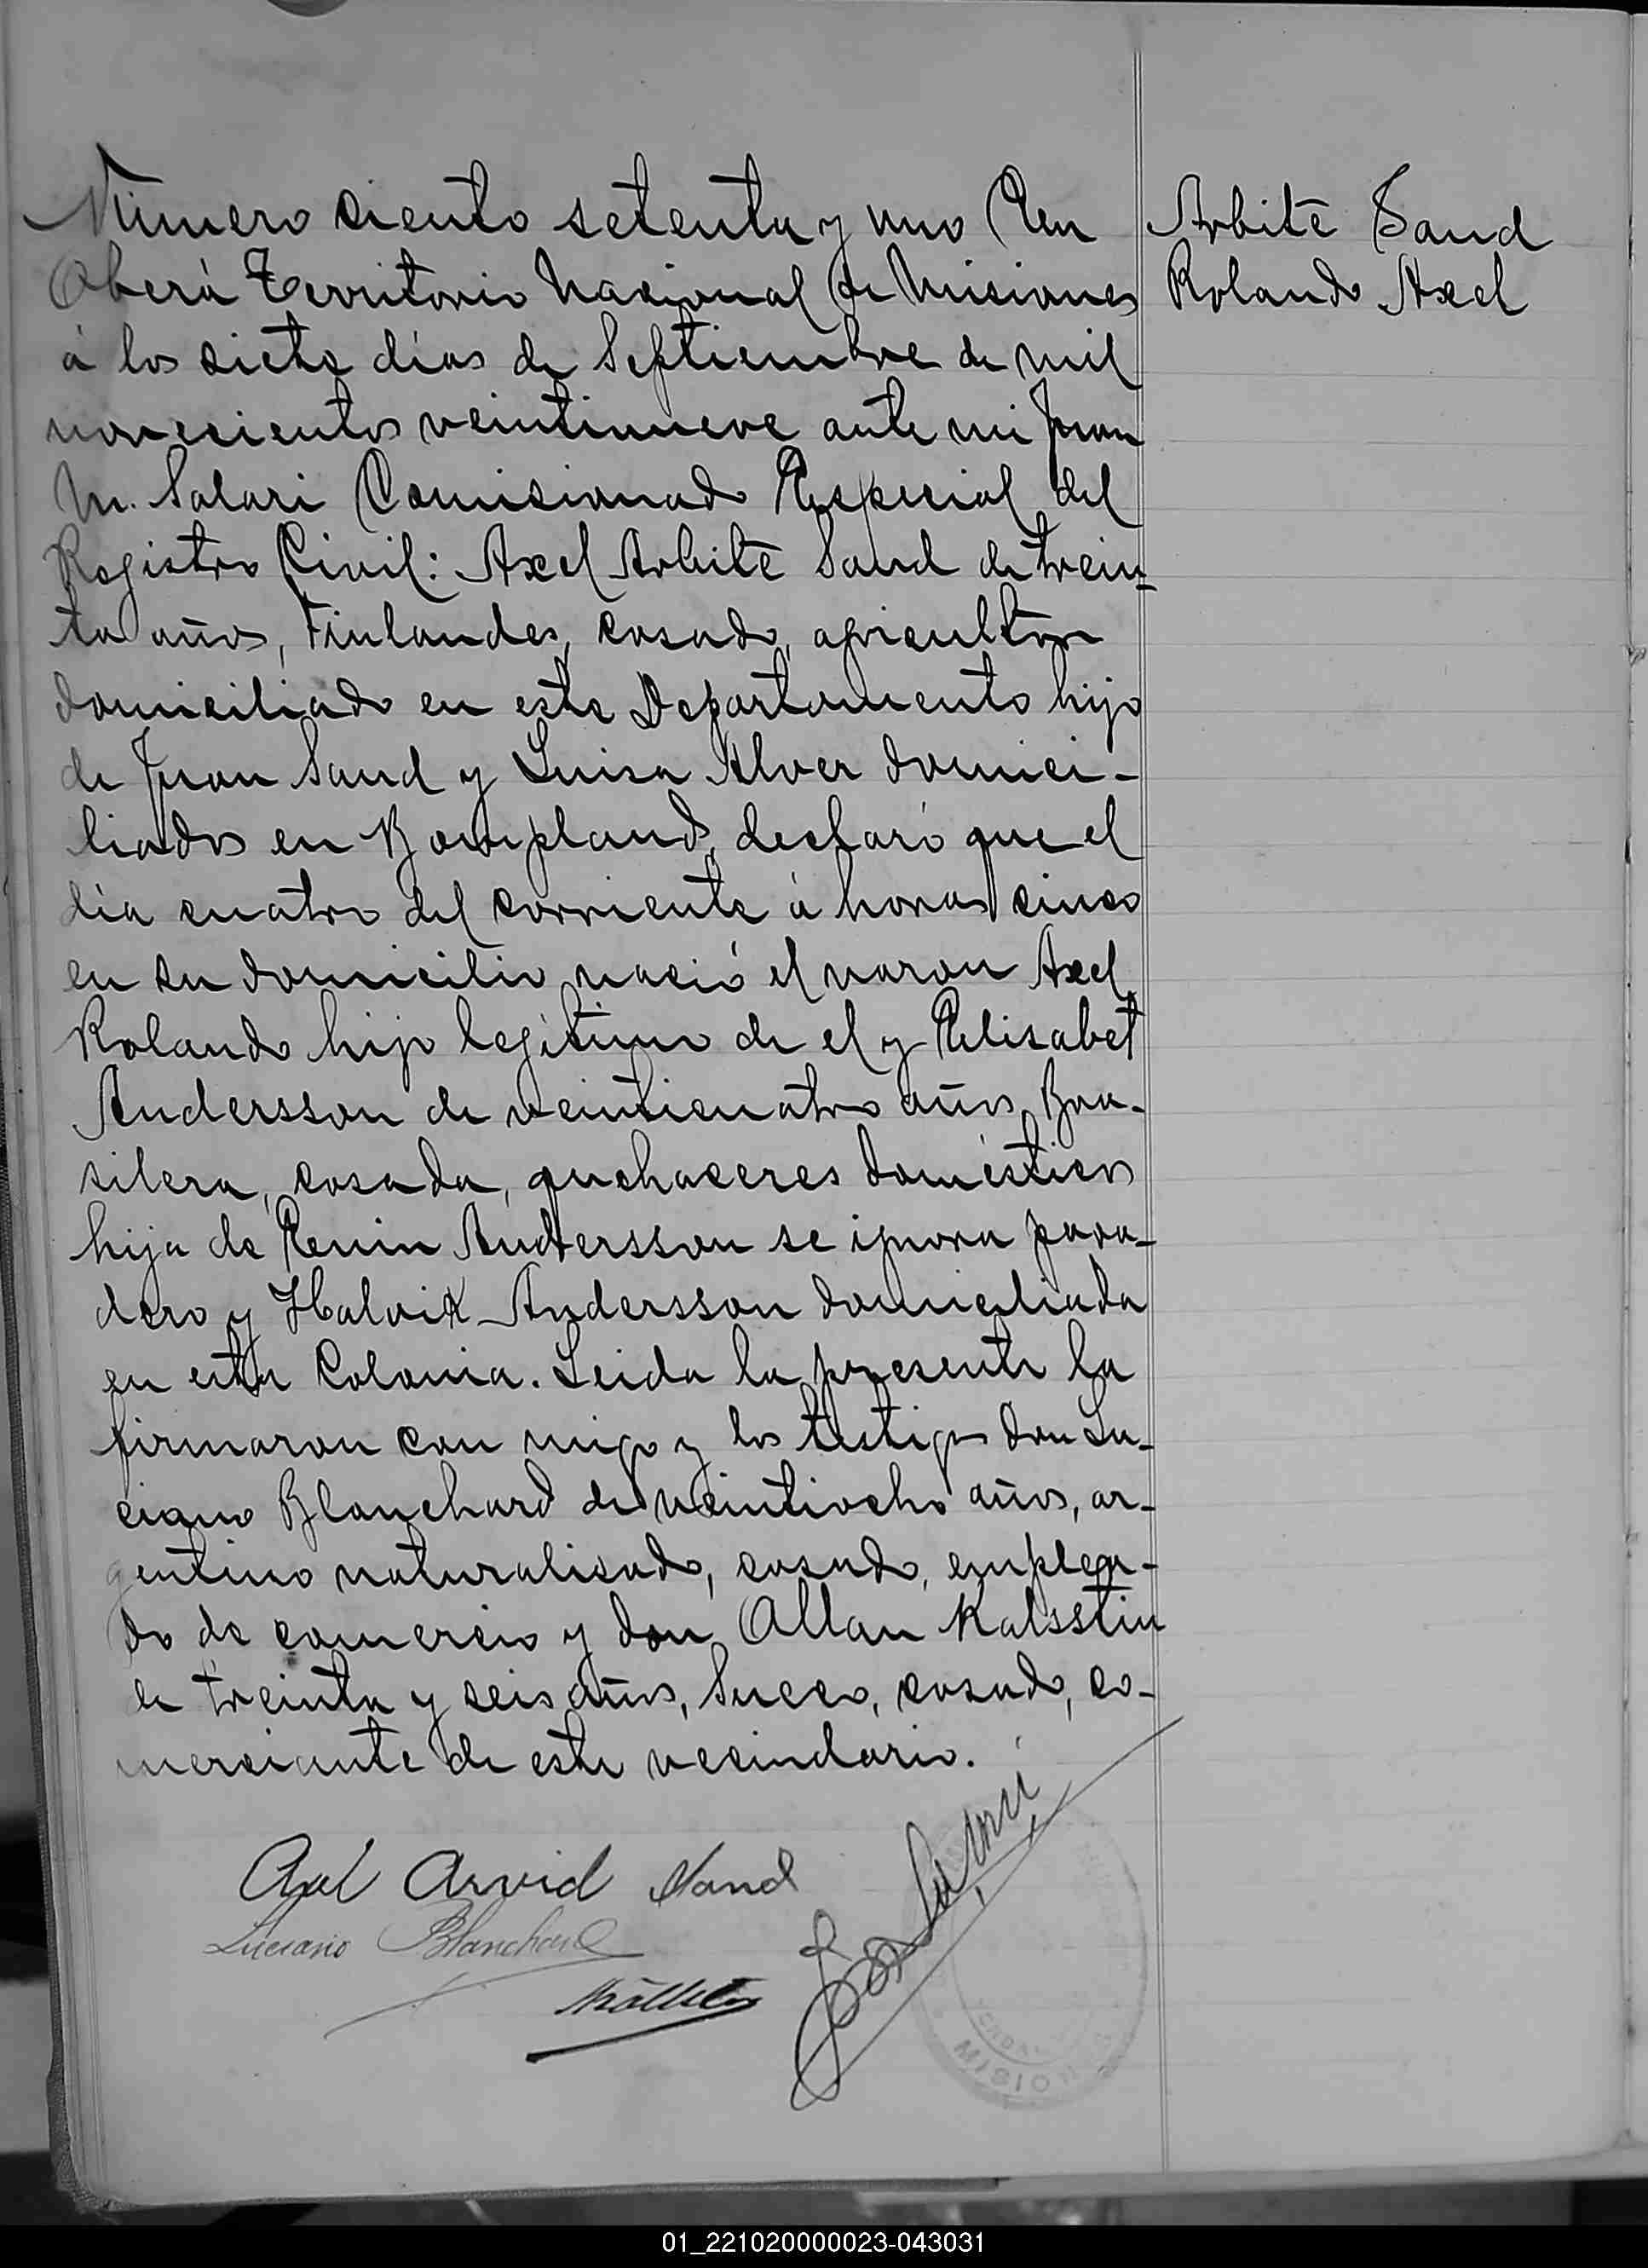 Número ciento setenta y uno En
Oberá Territorio Nacional de Misiones
á los siete días de Septiembre de mil
novecientos veintinueve ante mi Juan
M. Salari Comisionado Especial del
Registro Civil: Axel Arbite Sand de trein-
ta años, Finlandes, casado, agricultor
domiciliado en este Departamento hijo
de Juan Sand y Luisa Alver domici-
liados en Bompland, declaró que el
día cuatro del corriente á horas cinco
en su domicilio nació el varon Axel
Rolando hijo legítimo de el y Elisabet
Andersson de veinticuatro años, Bra-
silera, casada, quehaceres domésticos
hija de Ernin Andersson se ignora para-
dero y Halvik Andersson domiciliada
en esta Colonia. Leida la presente la
firmaron con migo y los testigos don Lu-
ciano Blanchard de veintiocho años, ar-
gentino naturalisado, casado, emplea-
do de comercio y don Allan Kalsstin
de treinta y seis años, Sueco, casado, co-
merciante de este vecindario.
Arbite Sand
Rolando Axel
Axel Arvid Sand
Luciano Blanchard
MISION
01_221020000023-043031